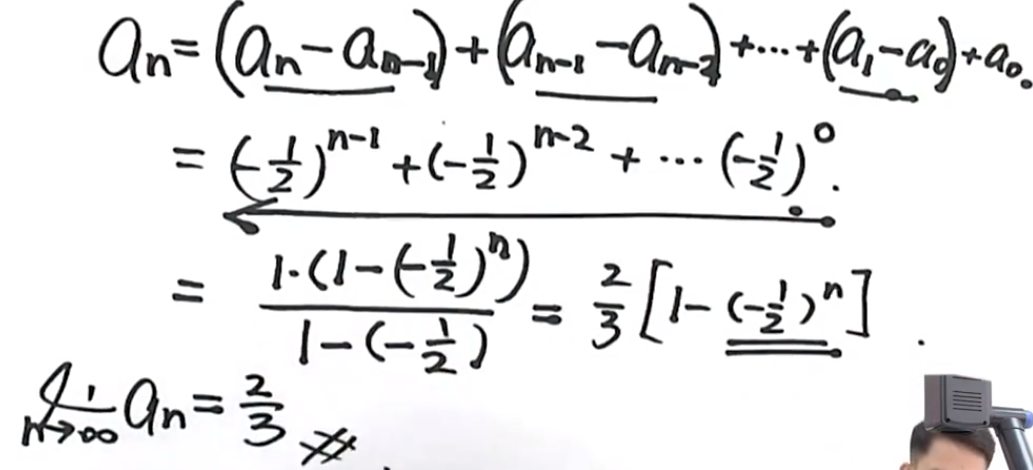 aₙ = (aₙ − aₙ₋₁) + (aₙ₋₁ − aₙ₋₂) + ⋯ + (a₁ − a₀) + a₀.
= (−1/2)ⁿ⁻¹ + (−1/2)ⁿ⁻² + ⋯ (−1/2)⁰.
= 1·(1 − (−1/2)ⁿ) / 1 − (−1/2) = 2/3 [1 − (−1/2)ⁿ].
lim n→∞ aₙ = 2/3